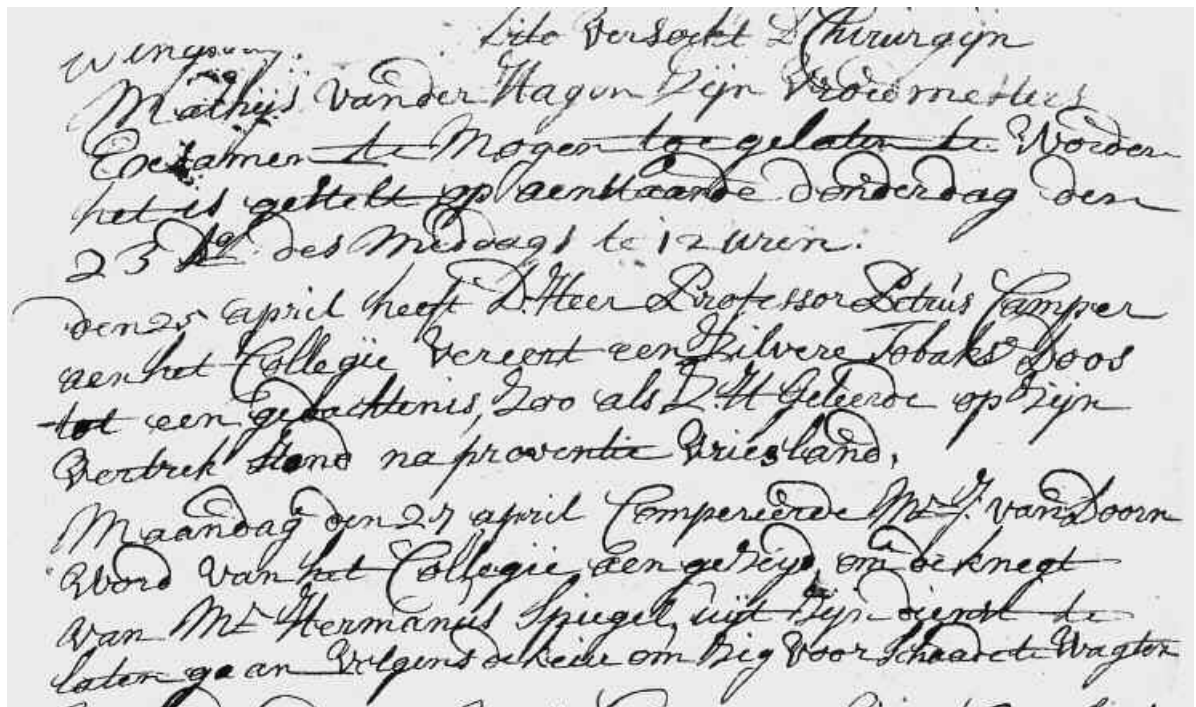 dito Versoekt D Chirurgijn
Mathijs Vander Hagen Zijn Vroedmeesters
Exsamen te Mogen toe gelaten te Worden
het is gestelt op aenstaande donderdag den
23 des Middags te 12 uren.
den 25 april heeft D. Heer Professor Petrus Camper
aen het Collegie Vereert een Zilvere Tobaks Doos
tot een gedachtenis, Zoo als Z. H Geleerde op Zijn
Vertrek stond na proventie Vriesland,
Maandag den 27 april Compereerde Mr J. van Doorn
Word van het Collegie aen gezeyd, om de knegt
van Mr Hermanus Spiegel, uijt Zijn dienst te
laten gaan Volgens de keur om Zig Voor Schaade te Wagten